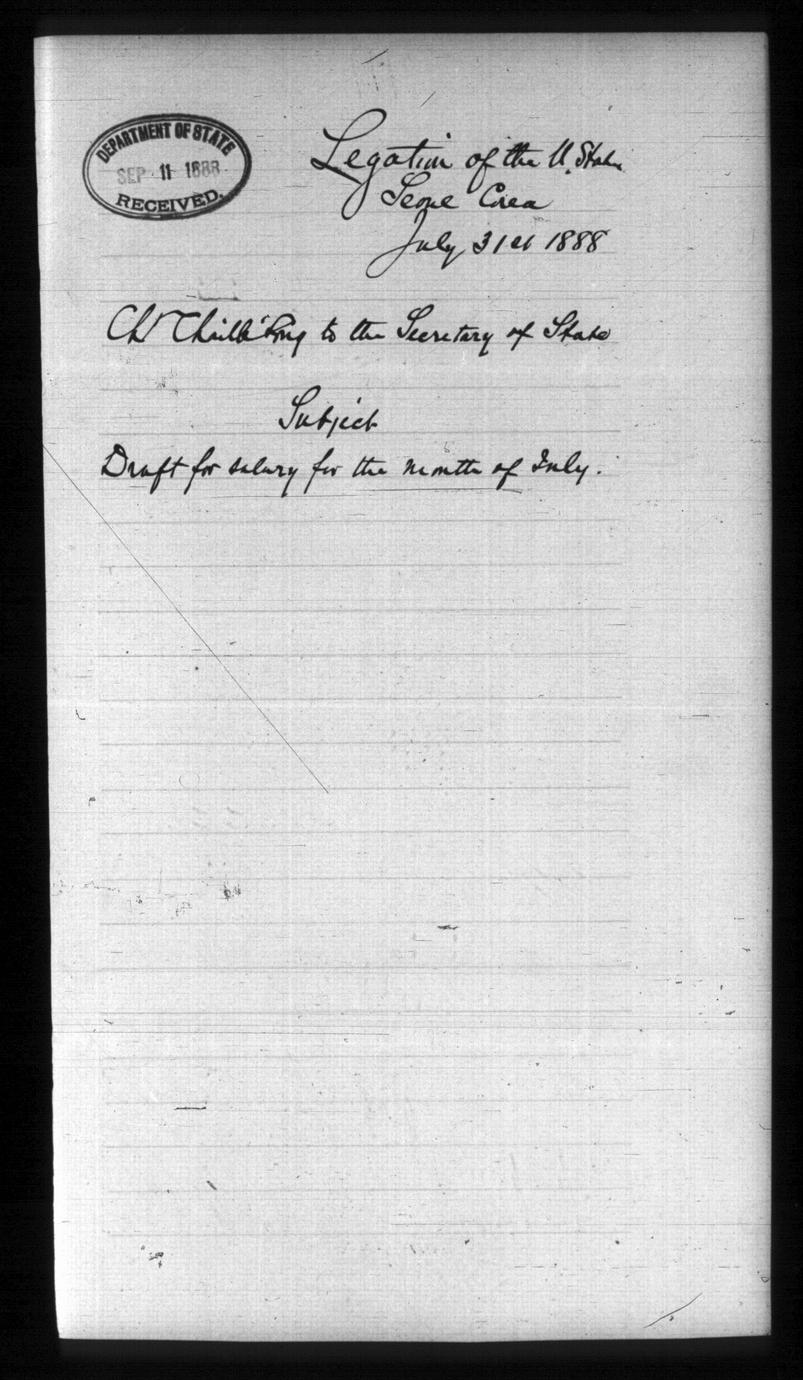 DEPARTMENT OF STATE
SEP 11 1888
RECEIVED.
Legation of the U. States
Seoul Corea
July 31st 1888
Ch Chaillé Long to the Secretary of State
Subject
Draft for salary for the month of July.